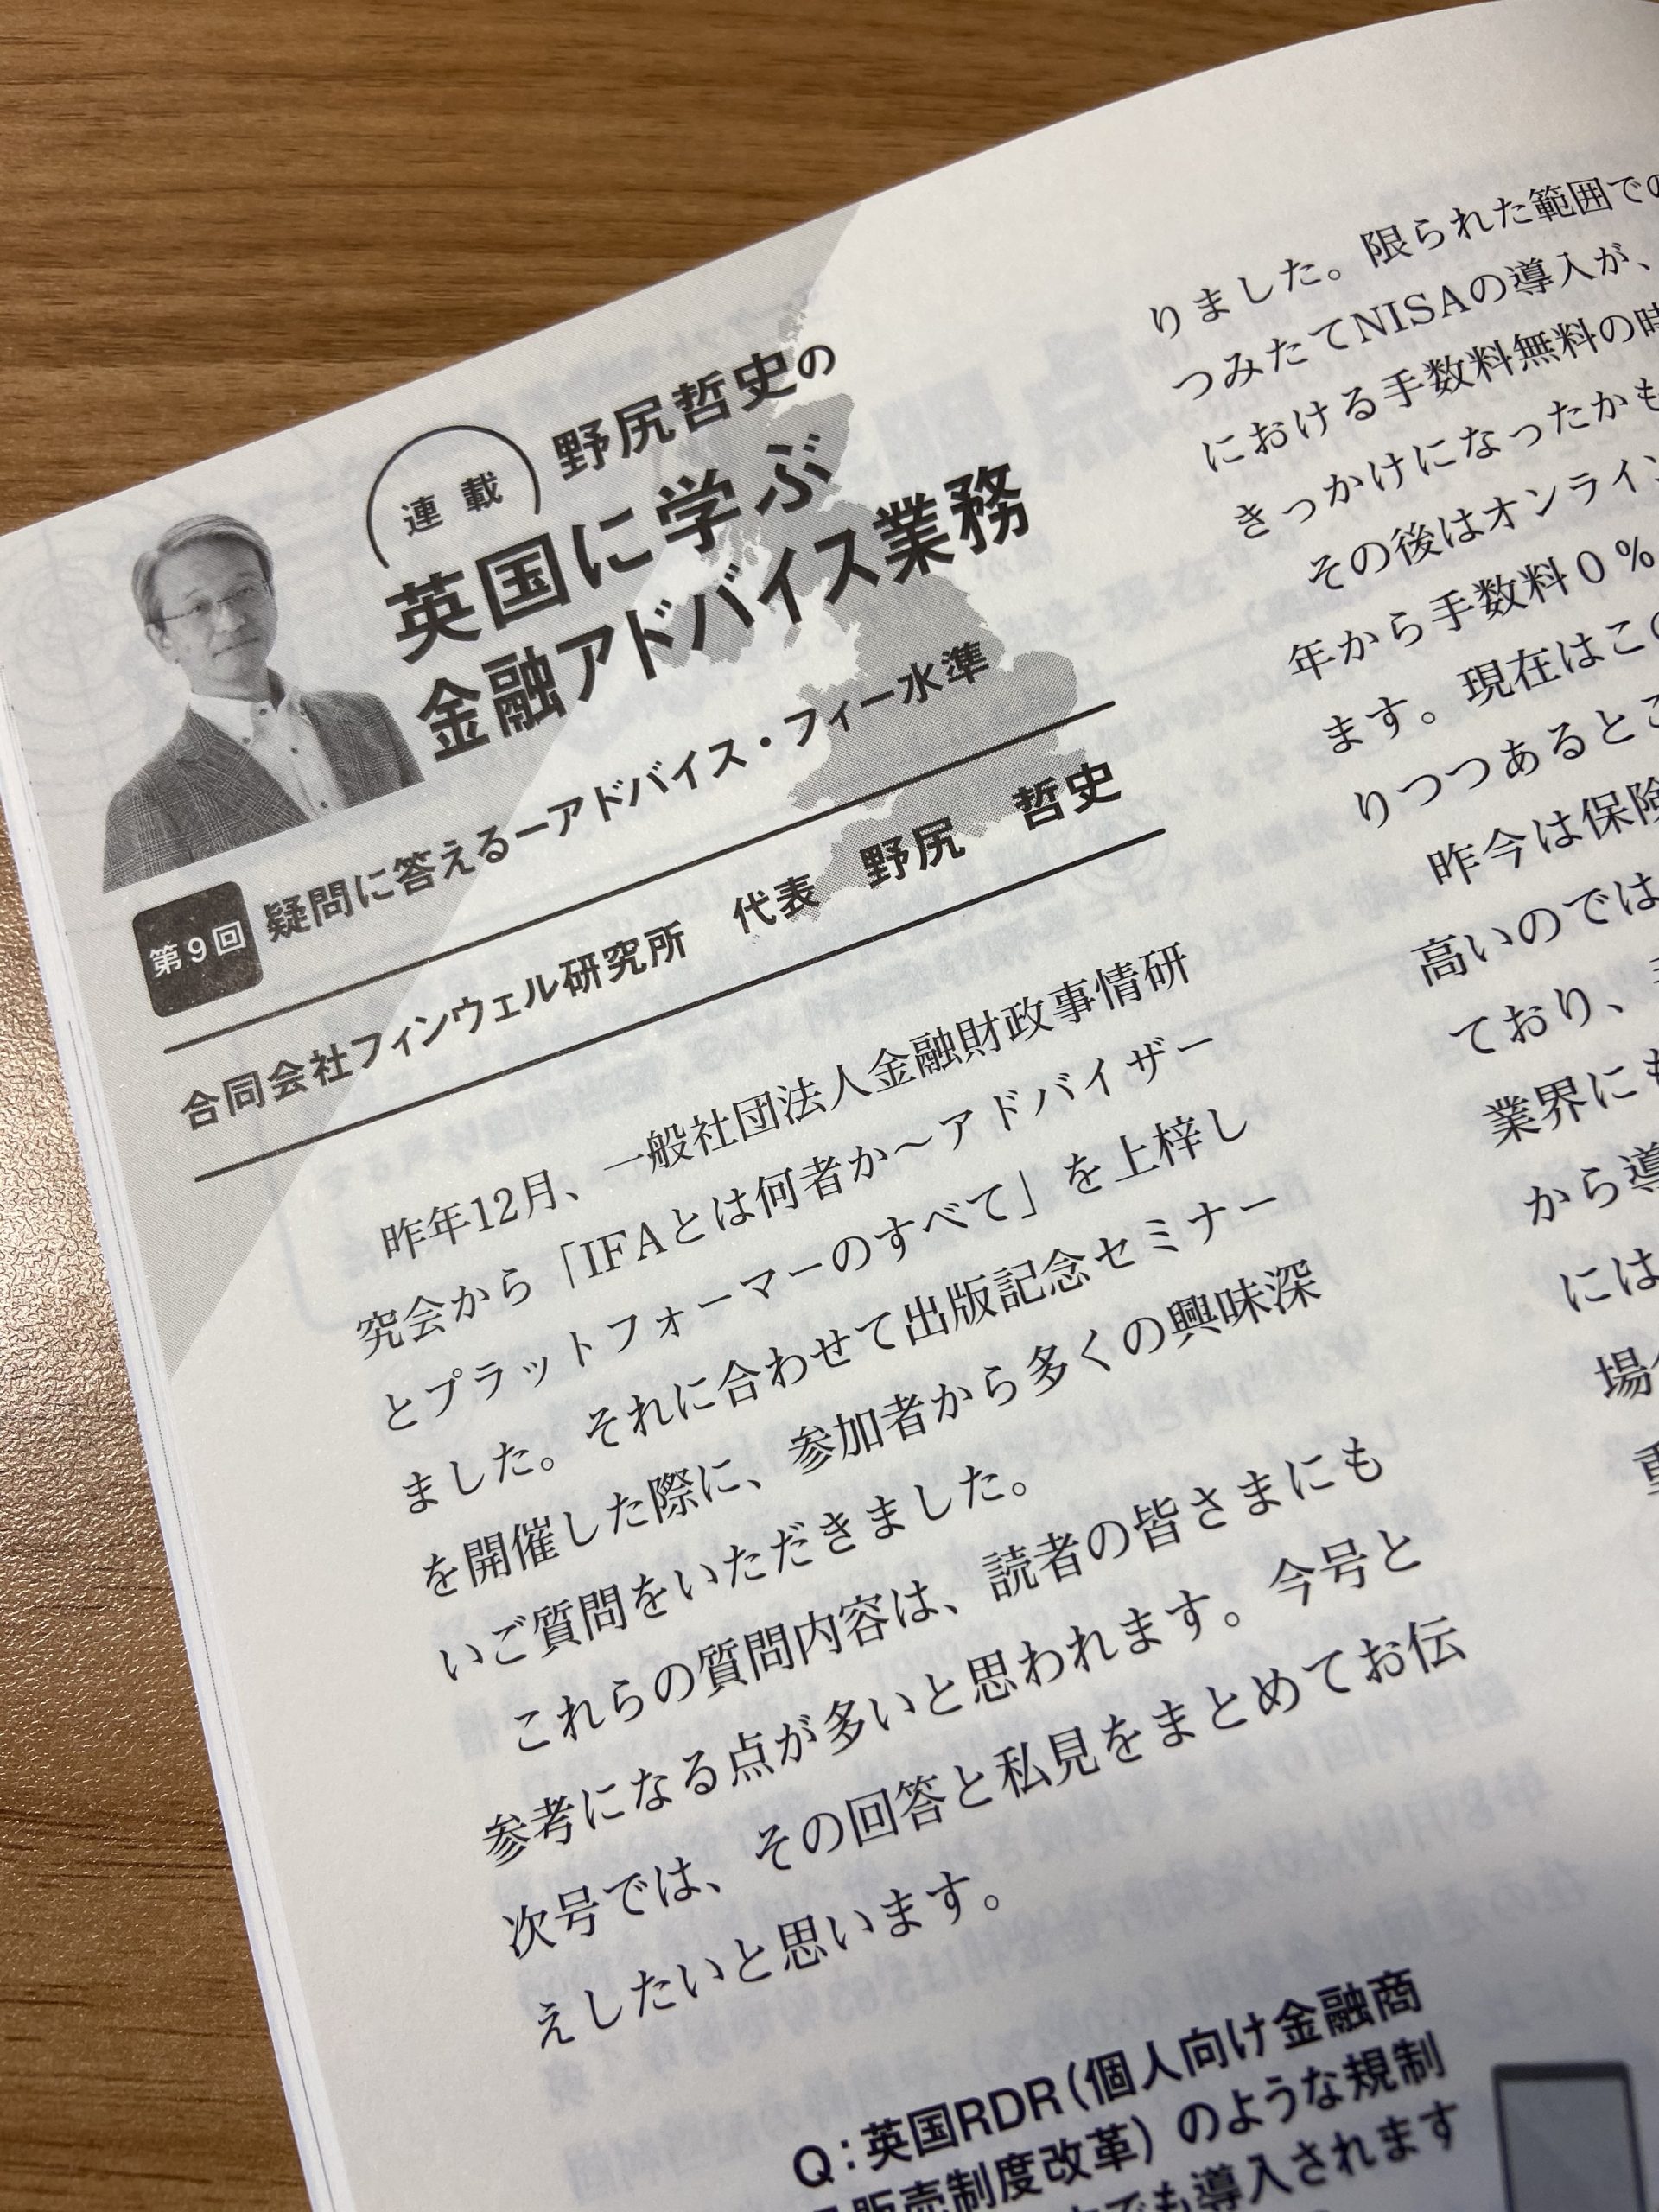 連載
野尻哲史の
英国に学ぶ
金融アドバイス業務
第9回
疑問に答える−アドバイス・フィー水準
合同会社フィンウェル研究所　代表　野尻　哲史
昨年12月、一般社団法人金融財政事情研
究会から「IFAとは何者か～アドバイザー
とプラットフォーマーのすべて」を上梓し
ました。それに合わせて出版記念セミナー
を開催した際に、参加者から多くの興味深
いご質問をいただきました。
これらの質問内容は、読者の皆さまにも
参考になる点が多いと思われます。今号と
次号では、その回答と私見をまとめてお伝
えしたいと思います。
Q：英国RDR（個人向け金融商
販売制度改革）のような規制
でも導入されます
りました。限られた範囲での
つみたてNISAの導入が、
における手数料無料の時
きっかけになったかも
その後はオンライン
年から手数料０％
ます。現在はこの
りつつあるとこ
昨今は保険
高いのでは
ており、
業界にも
から導
には
場合